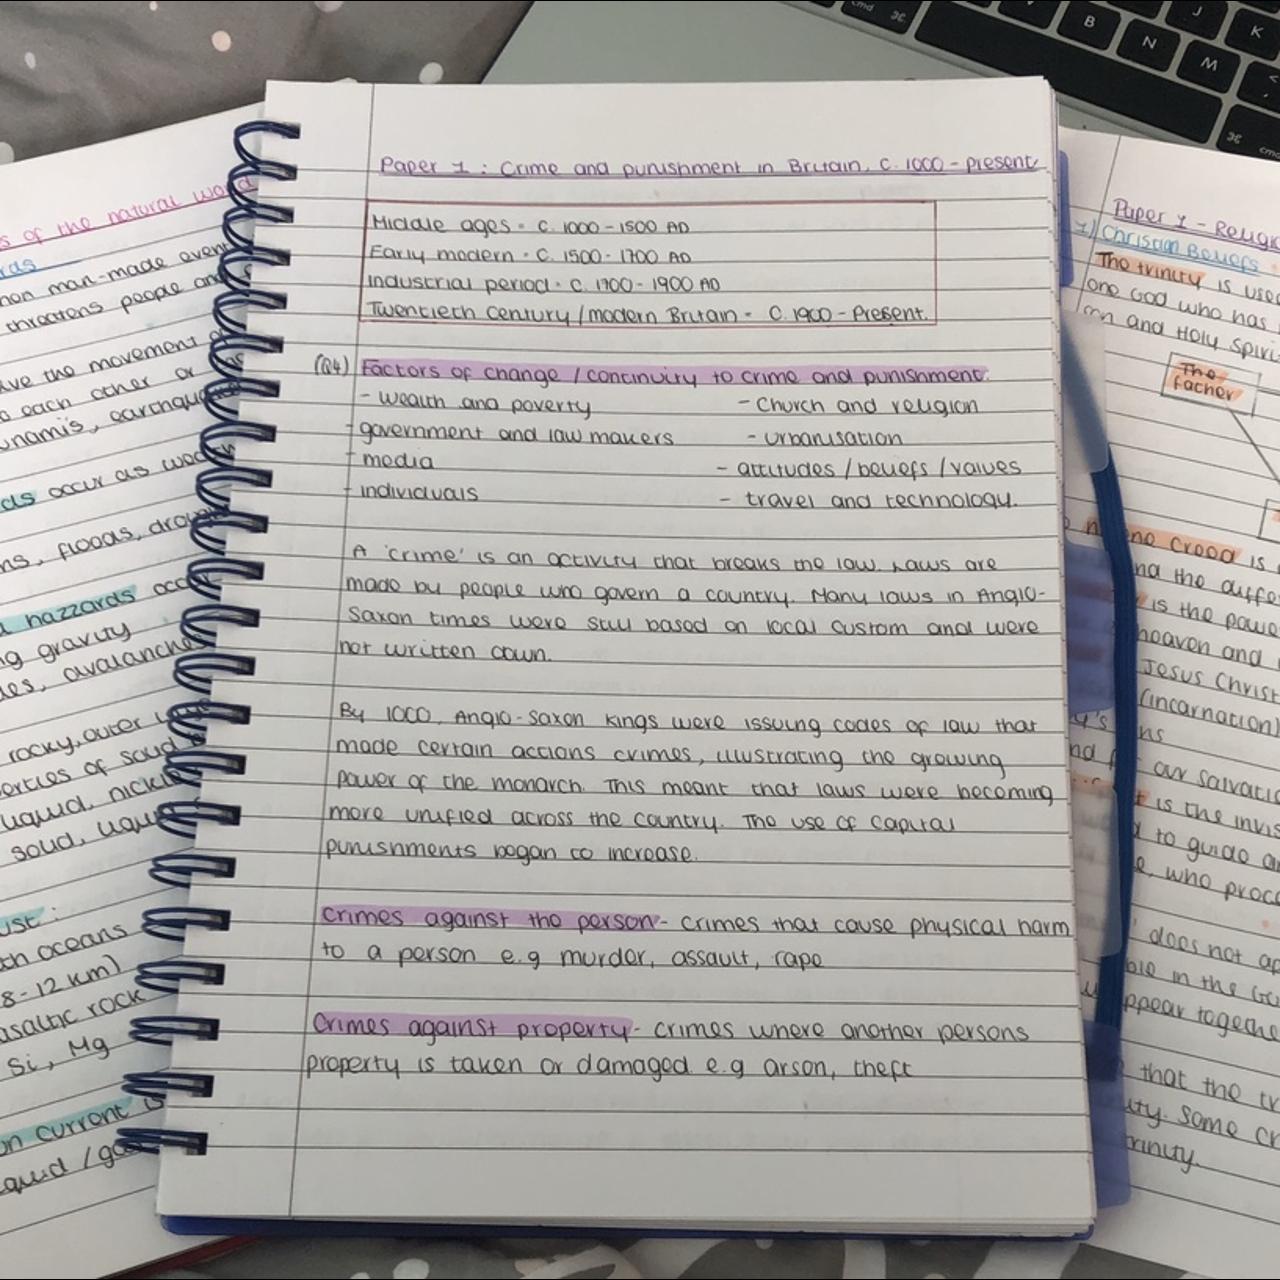 Paper 1 : Crime and punishment in Britain, c. 1000 - present
Middle ages - c. 1000 - 1500 AD
Early modern - c. 1500 - 1700 AD
Industrial period - c. 1700 - 1900 AD
Twentieth century / modern Britain - c. 1900 - Present.
(Q4) Factors of change / continuity to crime and punishment.
- wealth and poverty - church and religion
- government and law makers - urbanisation
- media - attitudes / beliefs / values
- individuals - travel and technology.
A 'crime' is an activity that breaks the law. Laws are
made by people who govern a country. Many laws in Anglo-
Saxon times were still based on local custom and were
not written down.
By 1000, Anglo-Saxon kings were issuing codes of law that
made certain actions crimes, illustrating the growing
power of the monarch. This meant that laws were becoming
more unified across the country. The use of capital
punishments began to increase.
Crimes against the person - crimes that cause physical harm
to a person e.g murder, assault, rape
Crimes against property - crimes where another persons
property is taken or damaged e.g arson, theft
s of the natural world
non man-made event
threatens people and
the movement
each other or
occur as
floods,
hazzards
gravity
rocky, outer
of solid
liquid,
solid,
oceans
8-12 km)
rock
Si, Mg
current is
Paper 1 -
1) Christian Beliefs
The trinity is
one God who has
and Holy
The
Father
creed is
and the
is the
heaven and
Jesus Christ
(incarnation)
our
is the
to guide
who
does not
in the
appear
that the
Some
trinity.
B
N
M
J
K
cmd ⌘
⌘